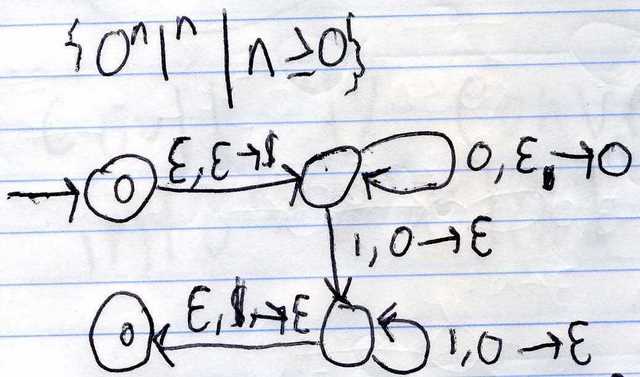 {0ⁿ1ⁿ | n ≥ 0}
ε, ε → $
0, ε → 0
1, 0 → ε
ε, $ → ε
1, 0 → ε